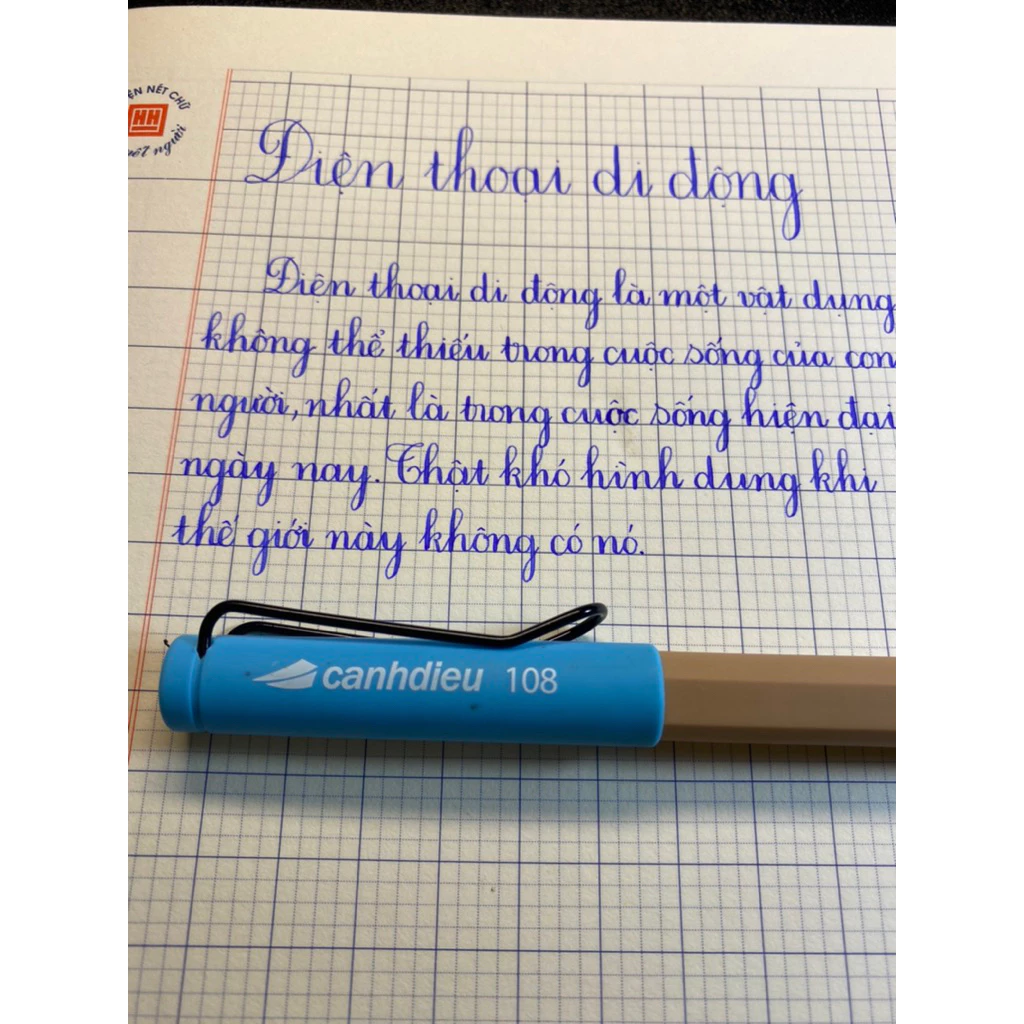 NÉT CHỮ
HH
người
Điện thoại di động
Điện thoại di động là một vật dụng
không thể thiếu trong cuộc sống của con
người, nhất là trong cuộc sống hiện đại
ngày nay. Thật khó hình dung khi
thế giới này không có nó.
canhdieu 108